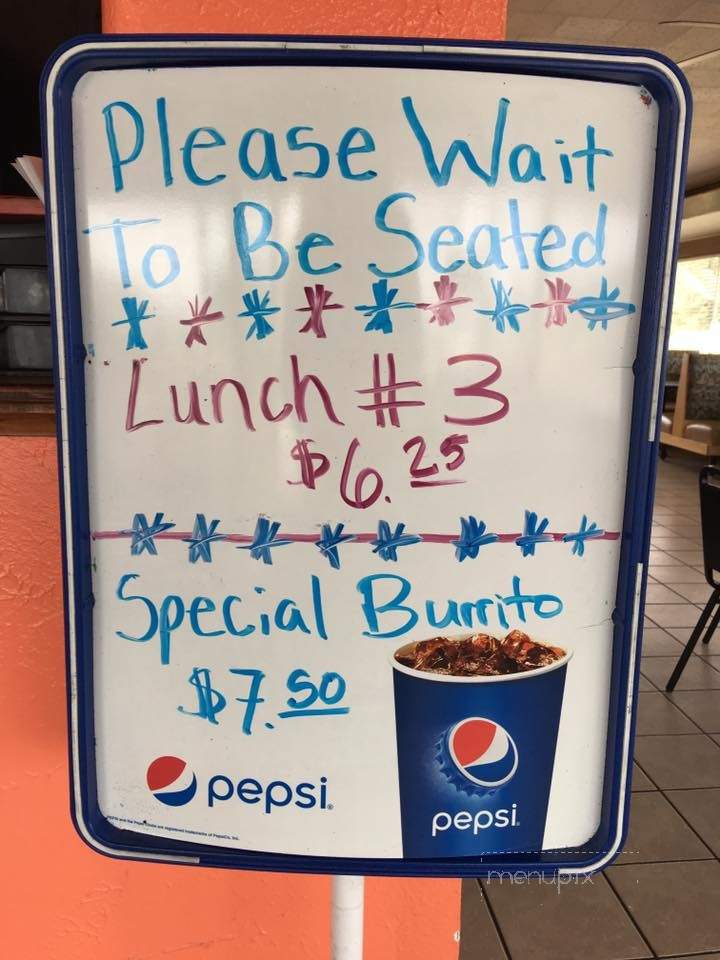 Please Wait
To Be Seated
Lunch #3
$6.25
Special Burrito
$7.50
pepsi
pepsi
menupix